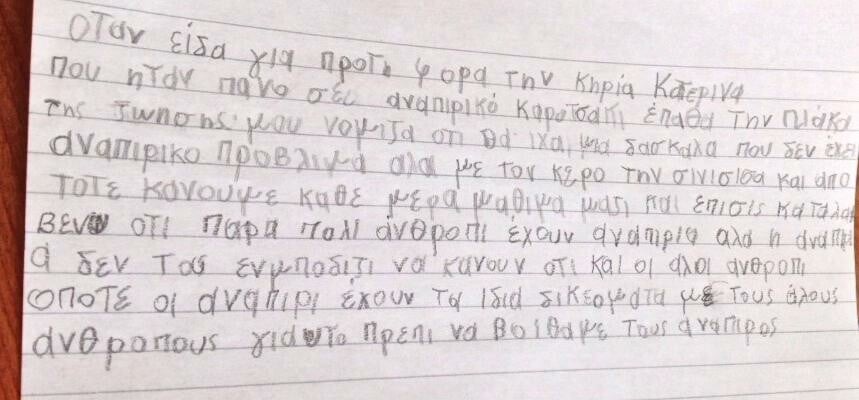 Οταν είδα για προτη φορα την κηρία Κατερινα
που ηταν πανο σε αναπιρικό καροτσακι επαθα την πλάκα
της ζωησης μου νομιζα οτι θα ιχα μια δασκαλα που δεν έχει
αναπιρικο προβλιμα αλα με τον κερο την σινισισα και απο
τοτε κανουμε καθε μερα μαθιμα μαζι και επισις καταλα
βενω οτι παρα πολι άνθροπι έχουν αναπιρια αλα η αναπιρι
α δεν τους ενμποδιζι να κανουν οτι και οι αλοι ανθροπι
οποτε οι αναπιρι έχουν τα ιδια δικεοματα με τους άλους
ανθροπους για υτο πρεπι να βοιθαμε τους αναπιρος